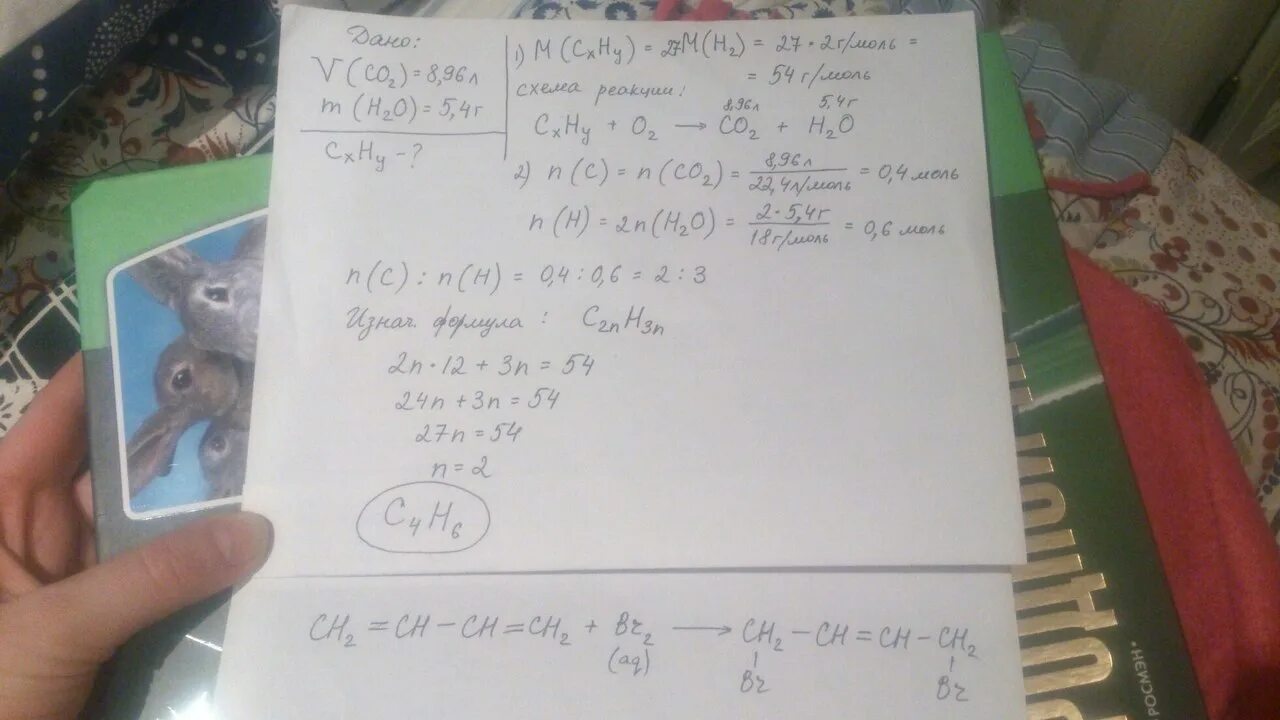 Дано:
V(CO₂) = 8,96л
m(H₂O) = 5,4г
CₓHᵧ - ?
1) M(CₓHᵧ) = 27M(H₂) = 27 • 2г/моль =
= 54г/моль
схема реакции:
8,96л 5,4г
CₓHᵧ + O₂ → CO₂ + H₂O
2) n(C) = n(CO₂) = 8,96л / 22,4л/моль = 0,4моль
n(H) = 2n(H₂O) = 2•5,4г / 18г/моль = 0,6 моль
n(C) : n(H) = 0,4 : 0,6 = 2 : 3
Изнач. формула : C₂ₙH₃ₙ
2n•12 + 3n = 54
24n + 3n = 54
27n = 54
n = 2
C₄H₆
CH₂=CH–CH=CH₂ + Br₂ → CH₂–CH=CH–CH₂
(aq)
Br Br
РОСМЭН